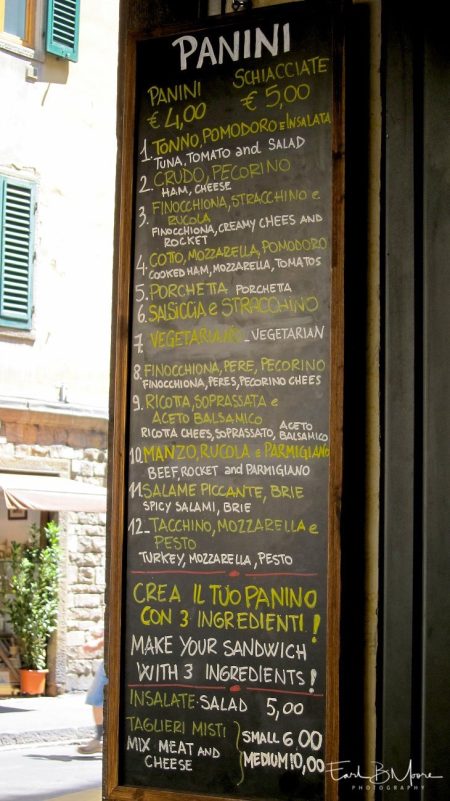 PANINI
PANINI SCHIACCIATE
€ 4,00 € 5,00
1. TONNO, POMODORO e INSALATA
TUNA, TOMATO and SALAD
2. CRUDO, PECORINO
HAM, CHEESE
3. FINOCCHIONA, STRACCHINO e
RUCOLA
FINOCCHIONA, CREAMY CHEES AND
ROCKET
4. COTTO, MOZZARELLA, POMODORO
COOKED HAM, MOZZARELLA, TOMATOS
5. PORCHETTA PORCHETTA
6. SALSICCIA e STRACCHINO
7. VEGETARIANO - VEGETARIAN
8. FINOCCHIONA, PERE, PECORINO
FINOCCHIONA, PERES, PECORINO CHEES
9. RICOTTA, SOPRASSATA e
ACETO BALSAMICO
RICOTTA CHEES, SOPRASSATO, ACETO
BALSAMICO
10. MANZO, RUCOLA e PARMIGIANO
BEEF, ROCKET and PARMIGIANO
11. SALAME PICCANTE, BRIE
SPICY SALAMI, BRIE
12_ TACCHINO, MOZZARELLA e
PESTO
TURKEY, MOZZARELLA, PESTO
CREA IL TUO PANINO
CON 3 INGREDIENTI!
MAKE YOUR SANDWICH
WITH 3 INGREDIENTS!
INSALATE - SALAD 5,00
TAGLIERI MISTI
MIX MEAT AND
CHEESE
SMALL 6.00
MEDIUM 10,00
Earl B Moore
PHOTOGRAPHY